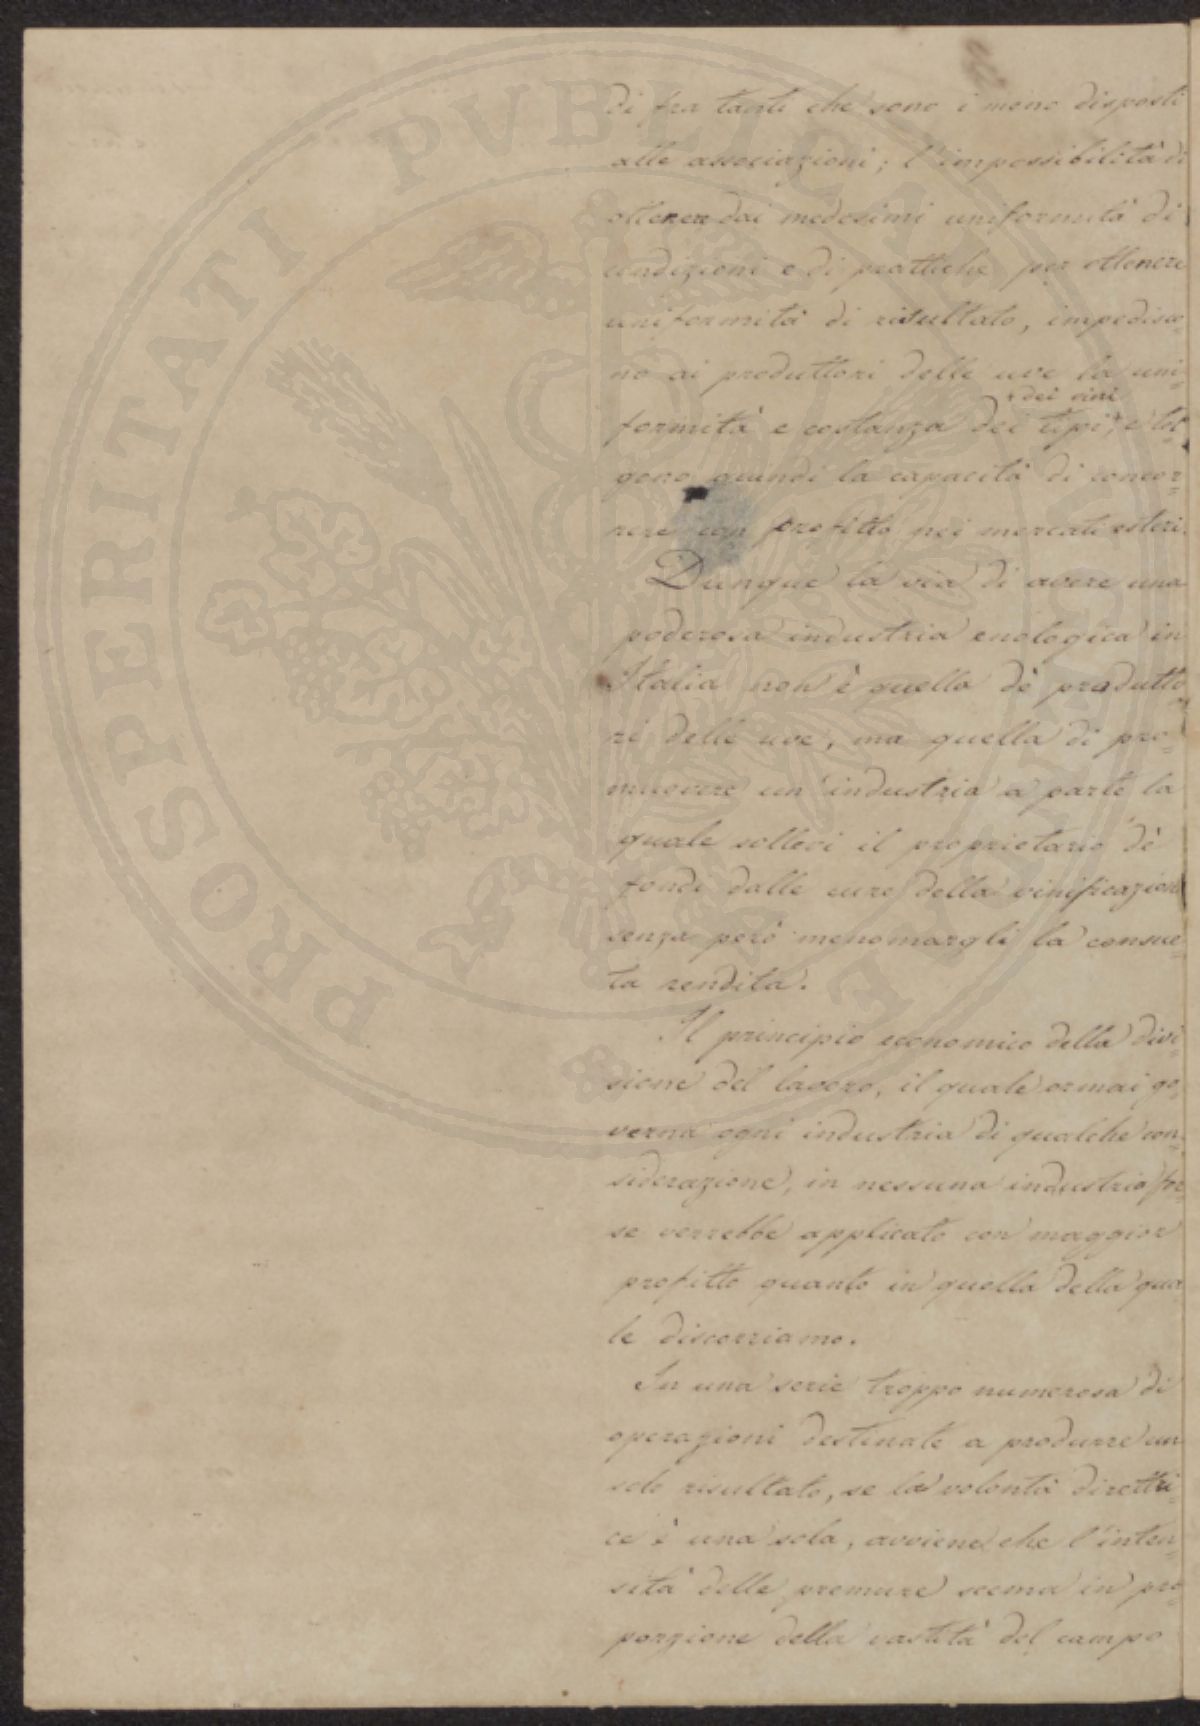 di fra tanti che sono i meno disposti
alle associazioni; l'impossibilità di
ottenere dai medesimi uniformità di
condizioni e di pratiche per ottenere
uniformità di risultato, impedisco-
no ai produttori delle uve la uni-
formità e costanza dei tipi + dei vini, e tol-
gono quindi la capacità di concor-
rere con profitto nei mercati esteri.
Dunque la via di avere una
poderosa industria enologica in
Italia non è quella dè produtto-
ri delle uve, ma quella di pro-
muovere un'industria a parte, la
quale sollevi il proprietario dè
fondi dalle cure della vinificazione
senza però menomargli la consue-
ta rendita.
Il principio economico della divi-
sione del lavoro, il quale ormai go-
verna ogni industria di qualche con-
siderazione, in nessuna industria for-
se verrebbe applicato con maggior
profitto quanto in quella della qua-
le discorriamo.
In una serie troppo numerosa di
operazioni destinate a produrre un
solo risultato, se la volontà diretti-
ce è una sola, avviene che l'inten-
sità delle premure scema in pro-
porzione della vastità del campo
PROSPERITATI PVBLICAE